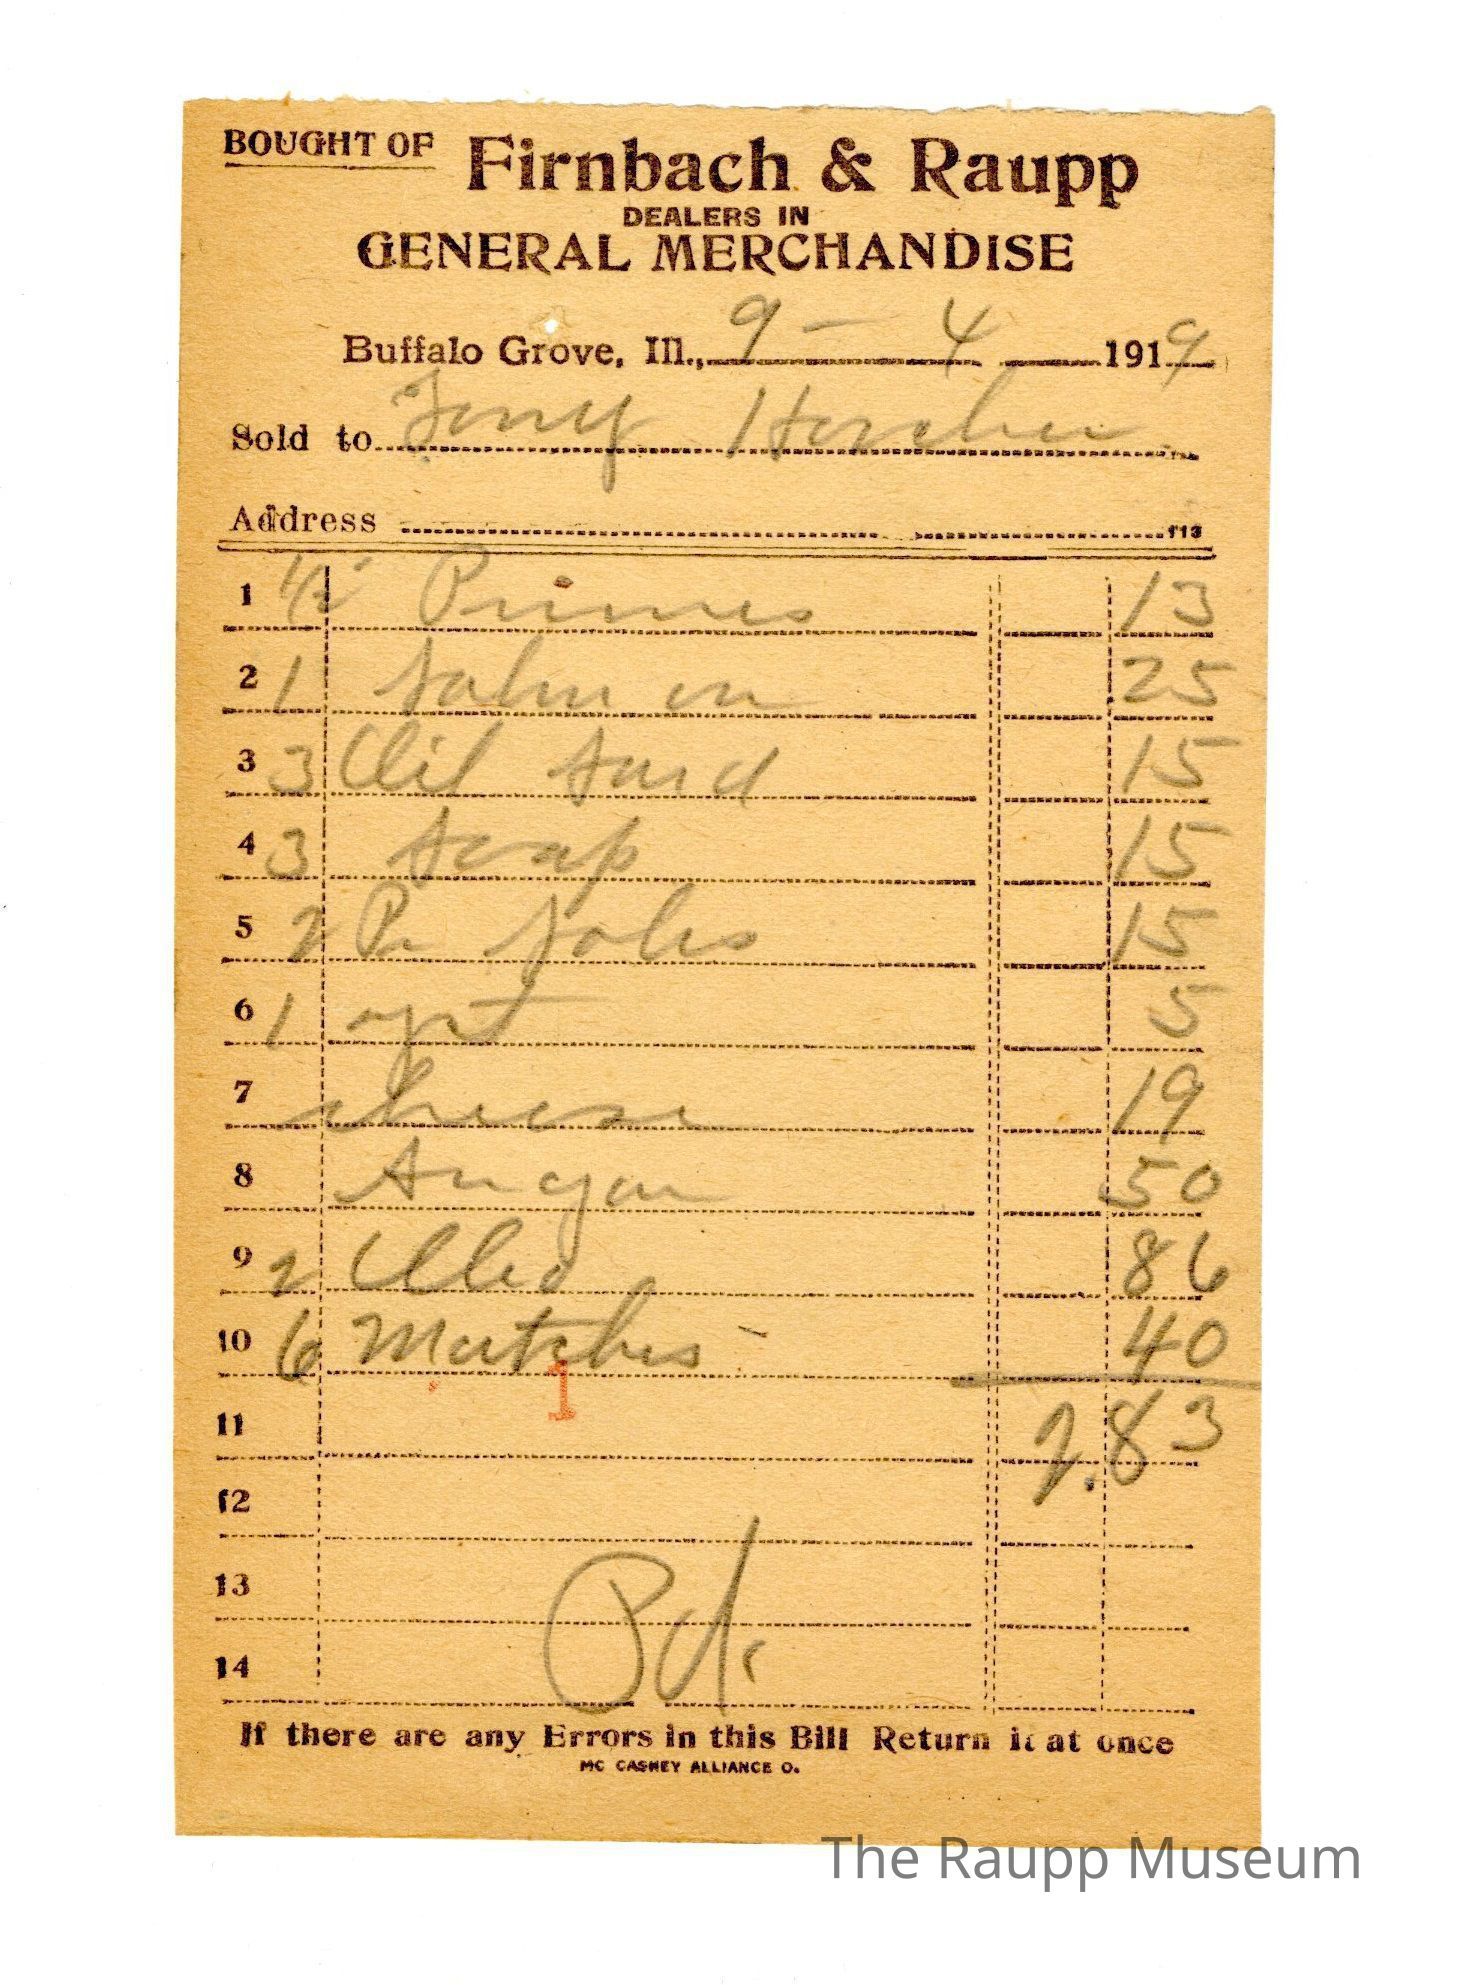 BOUGHT OF Firnbach & Raupp
DEALERS IN
GENERAL MERCHANDISE
Buffalo Grove, Ill., 9 - 4 1919
Sold to Tony Horcher
Address 113
1 1/2 Prunes 13
2 1 Salmon 25
3 3 Oil Sard 15
4 3 Soap 15
5 2 Pr Soles 15
6 1 15 5
7 cheese 19
8 Sugar 50
9 2 86
10 6 Matches 40
1
11 2.83
12
13 Pd.
14
If there are any Errors in this Bill Return it at once
MC CASKEY ALLIANCE O.
The Raupp Museum